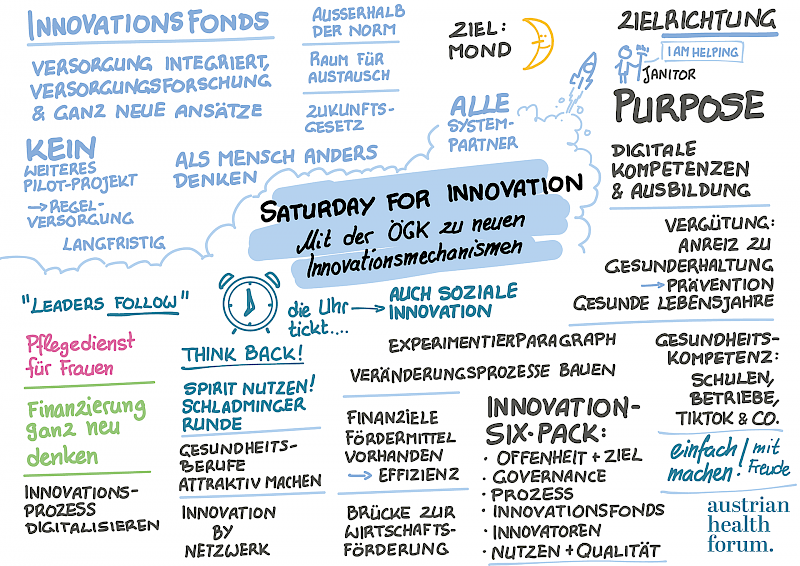 INNOVATIONSFONDS
VERSORGUNG INTEGRIERT,
VERSORGUNGSFORSCHUNG
& GANZ NEUE ANSÄTZE
KEIN
WEITERES
PILOT-PROJEKT
→ REGEL-
VERSORGUNG
LANGFRISTIG
ALS MENSCH ANDERS
DENKEN
AUSSERHALB
DER NORM
RAUM FÜR
AUSTAUSCH
ZUKUNFTS-
GESETZ
ZIEL:
MOND
ALLE
SYSTEM-
PARTNER
ZIELRICHTUNG
I AM HELPING
JANITOR
PURPOSE
DIGITALE
KOMPETENZEN
& AUSBILDUNG
SATURDAY FOR INNOVATION
Mit der ÖGK zu neuen
Innovationsmechanismen
VERGÜTUNG:
ANREIZ ZU
GESUNDERHALTUNG
→ PRÄVENTION
GESUNDE LEBENSJAHRE
"LEADERS FOLLOW"
die Uhr
tickt....
→ AUCH SOZIALE
INNOVATION
Pflegedienst
für Frauen
Finanzierung
ganz neu
denken
INNOVATIONS-
PROZESS
DIGITALISIEREN
THINK BACK!
SPIRIT NUTZEN!
SCHLADMINGER
RUNDE
GESUNDHEITS-
BERUFE
ATTRAKTIV MACHEN
INNOVATION
BY
NETZWERK
EXPERIMENTIERPARAGRAPH
VERÄNDERUNGSPROZESSE BAUEN
FINANZIELE
FÖRDERMITTEL
VORHANDEN
→ EFFIZIENZ
BRÜCKE ZUR
WIRTSCHAFTS-
FÖRDERUNG
INNOVATION-
SIX-PACK:
· OFFENHEIT + ZIEL
· GOVERNANCE
· PROZESS
· INNOVATIONSFONDS
· INNOVATOREN
· NUTZEN + QUALITÄT
GESUNDHEITS-
KOMPETENZ:
SCHULEN,
BETRIEBE,
TIKTOK & CO.
einfach
machen!
mit
Freude
austrian
health
forum.